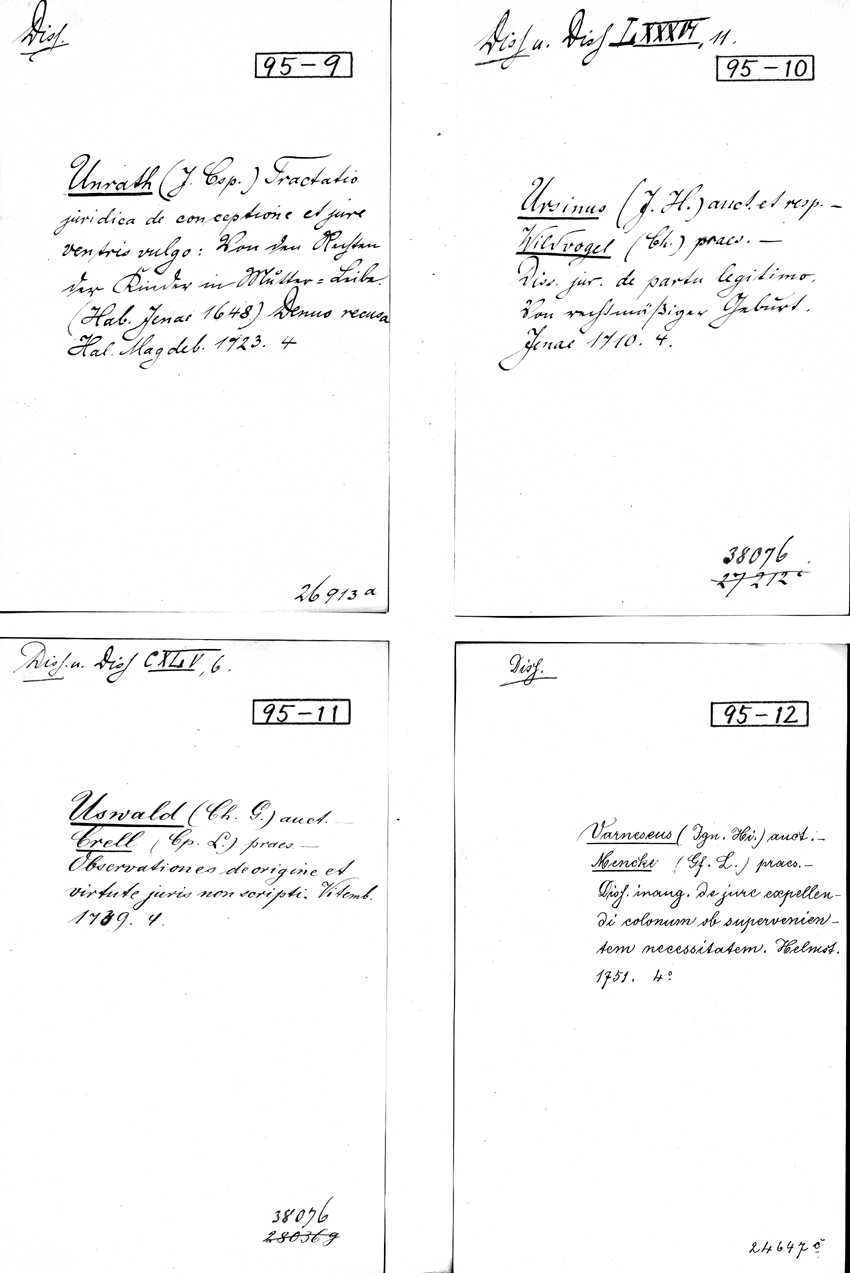 Diss.
95-9
Unrath (J. Csp.) Tractatio
juridica de conceptione et jure
ventris vulgo: Von den Rechten
der Kinder in Mutter=Leibe.
(Hab. Jenae 1648) Denuo recusa
Hal. Magdeb. 1723. 4
26913a
Diss u. Diss LXXXVI, 11.
95-10
Ursinus (J. H.) auct. et resp. –
Wildvogel (Ch.) praes. –
Diss. jur. de partu legitimo.
Von rechtmäßiger Geburt.
Jenae 1710. 4.
38076
27212c
Diss. u. Diss CXLV, 6.
95-11
Uswald (Ch. G.) auct. –
Crell (Cp. L.) praes –
Observationes de origine et
virtute juris non scripti. Vitemb.
1739. 4.
38076
28036g
Diss.
95-12
Varneseus (Ign. Hi.) auct. –
Mencke (Gf. L.) praes. –
Diss. inaug. de jure expellen-
di colonum ob supervenien-
tem necessitatem. Helmst.
1751. 4°
24647c